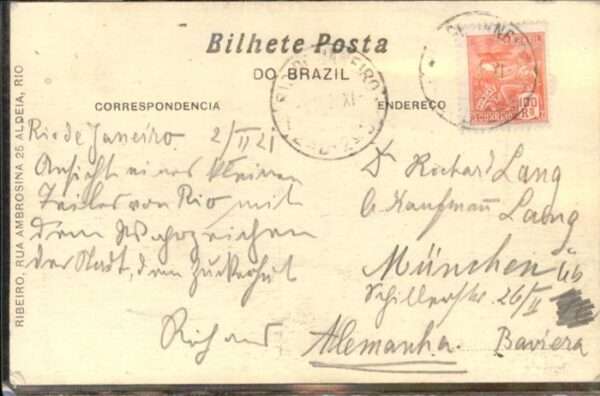 Bilhete Postal
DO BRAZIL
CORRESPONDENCIA
ENDEREÇO
RIBEIRO, RUA AMBROSINA 25 ALDEIA, RIO
100
RS
CORREIO
Rio de Janeiro 2/II 21
Ansicht eines kleinen
Teiles von Rio mit
dem Wahrzeichen
der Stadt, dem Zuckerhut
Richard
Dr Richard Lang
Kaufmann Lang
München
Schillerstr. 26/II
Alemanha. Baviera